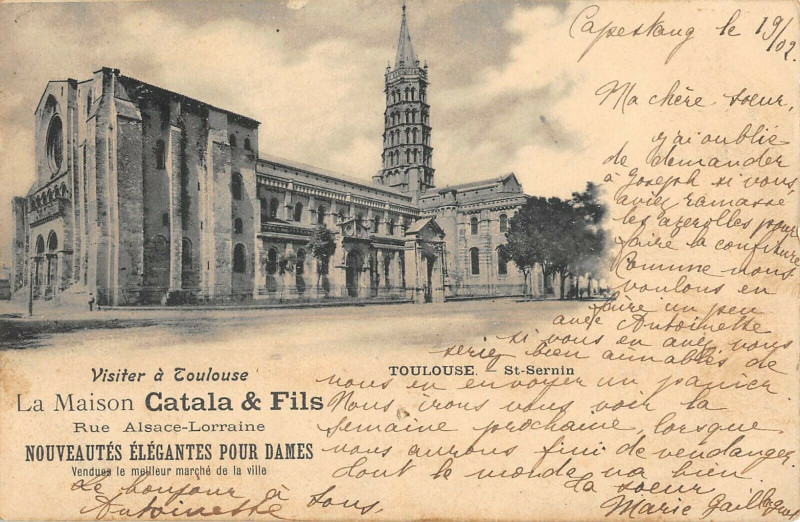 Capestang le 19/02.
Ma chère soeur,
j'ai oublié
de demander
à Joseph si vous
aviez ramassé
les azerolles pour
faire la confiture
Comme nous
voulons en
faire un peu
avec Antoinette
si vous en avez vous
seriez bien aimables de
nous en envoyer un panier
Nous irons vous voir la
semaine prochaine, lorsque
nous aurons fini de vendanger.
tout le monde va bien.
Ta soeur
Marie
Le bonjour à tous,
Antoinette
TOULOUSE. St-Sernin
Visiter à Toulouse
La Maison Catala & Fils
Rue Alsace-Lorraine
NOUVEAUTÉS ÉLÉGANTES POUR DAMES
Vendues le meilleur marché de la ville